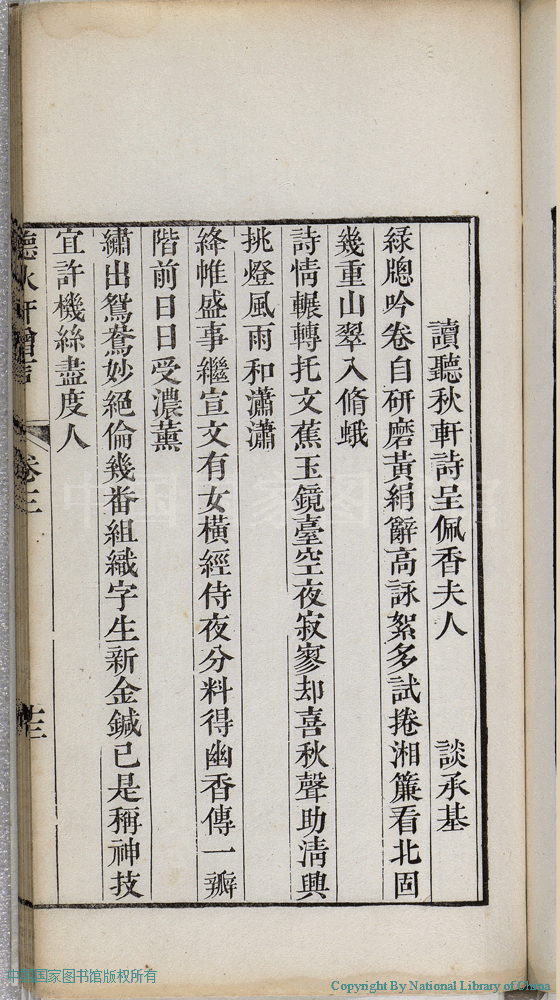 讀聽秋軒詩呈佩香夫人 談承基
綠牕吟卷自研磨黃絹辭高詠絮多試捲湘簾看北固
幾重山翠入脩蛾
詩情輾轉托文蕉玉鏡臺空夜寂寥却喜秋聲助清興
挑燈風雨和瀟瀟
絳帷盛事繼宣文有女橫經侍夜分料得幽香傳一瓣
階前日日受濃薰
繡出鴛鴦妙絕倫幾番組織字生新金鍼已是稱神技
宜許機絲盡度人
聽秋軒贈言 卷三 十三
中国国家图书馆
中国国家图书馆版权所有
Copyright By National Library of China